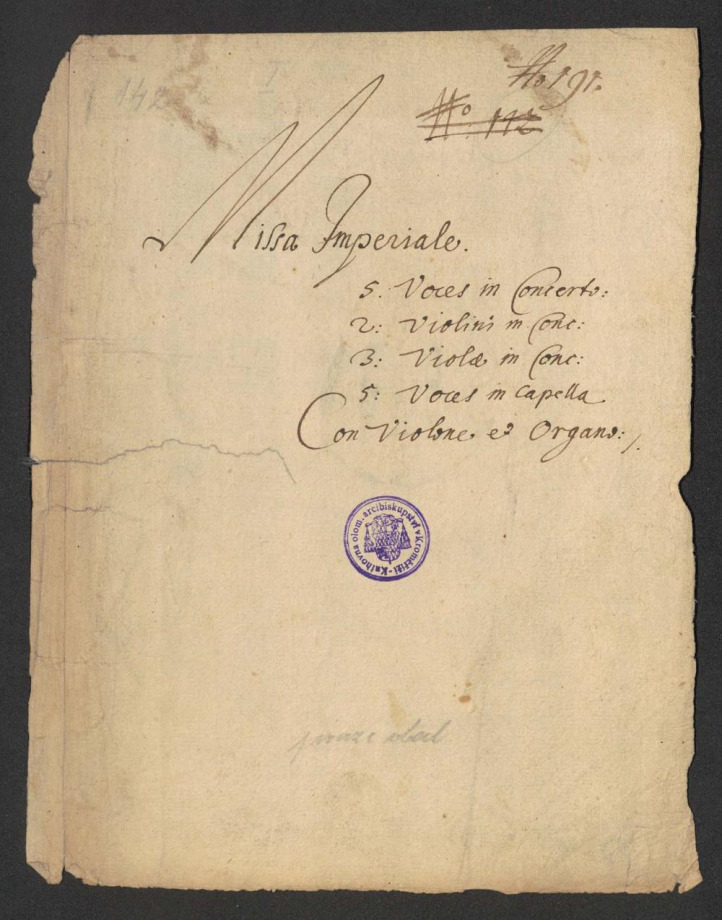 142 I
No 191.
No. 142
Missa Imperiale.
5. Voces in Concerto:
2: Violini in Conc:
3: Violæ in Conc:
5: Voces in Capella
Con Violone et Organo:/.
Knihovna olom. arcibiskupství v Kroměříži -
pouze obal